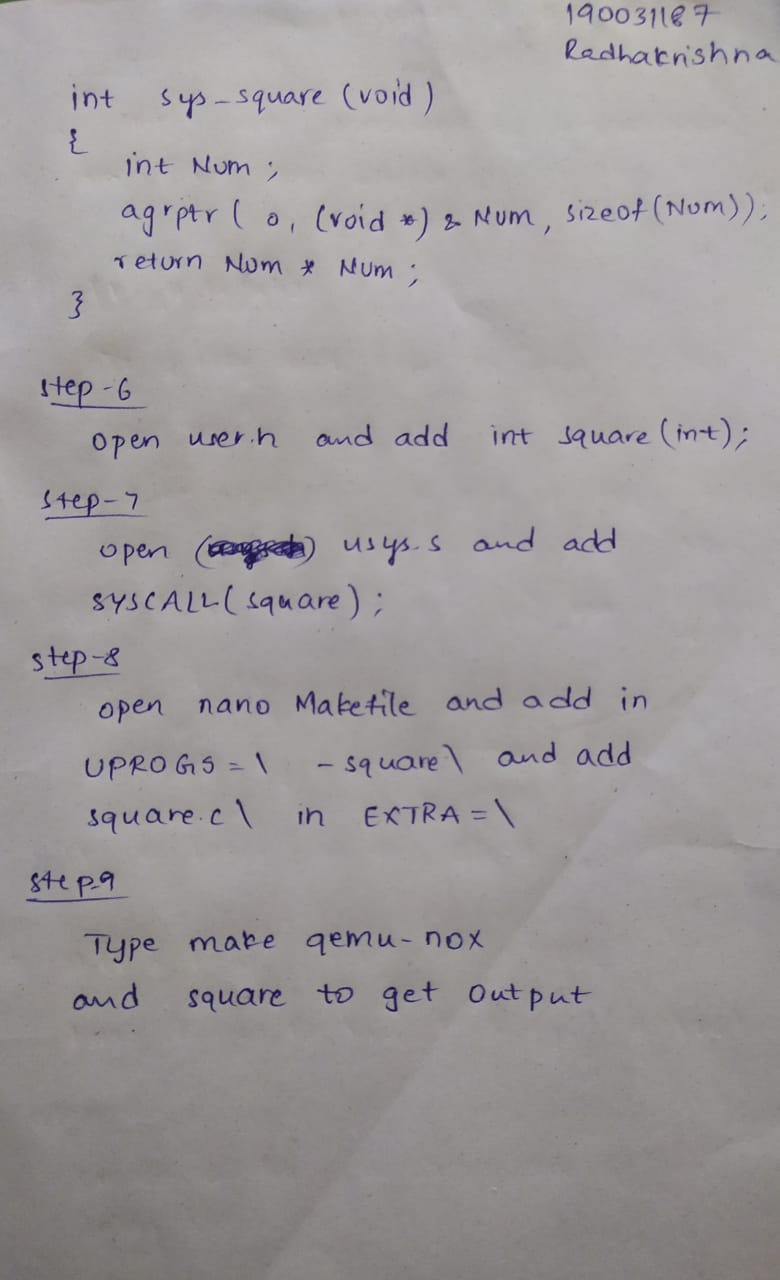 190031187
Radhakrishna
int sys-square (void)
{
int Num ;
agrptr ( 0, (void *) & Num, sizeof(Num));
return Num * Num ;
}
step-6
open user.h and add int square (int);
step-7
open () usys.s and add
SYSCALL( square ) ;
step-8
open nano Makefile and add in
UPROGS = \ - square \ and add
square.c \ in EXTRA = \
step-9
Type make qemu-nox
and square to get output